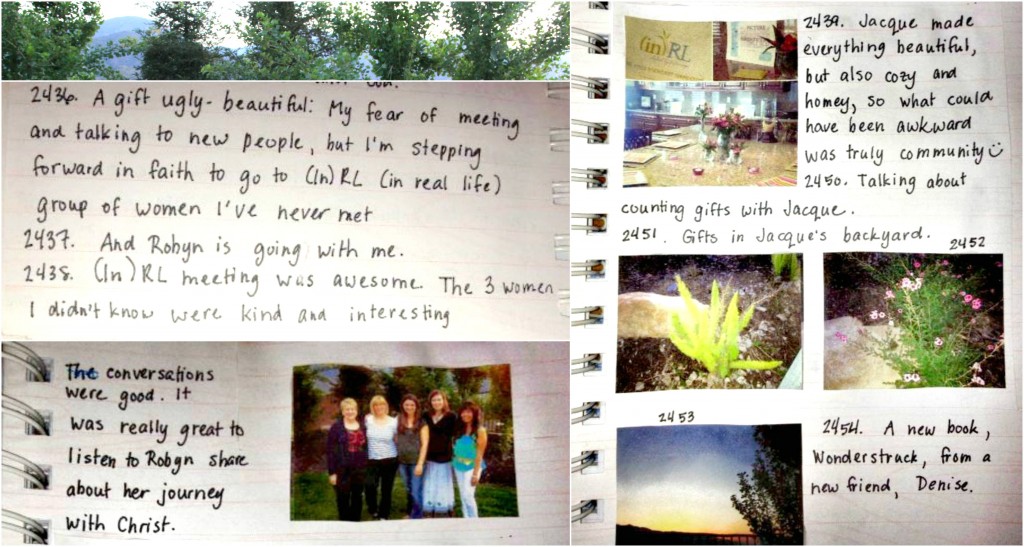 2436. A gift ugly-beautiful: My fear of meeting
and talking to new people, but I'm stepping
forward in faith to go to (In)RL (in real life)
group of women I've never met
2437. And Robyn is going with me.
2438. (In)RL meeting was awesome. The 3 women
I didn't know were kind and interesting
The conversations
were good. It
was really great to
listen to Robyn share
about her journey
with Christ.
(in)RL
2439. Jacque made
everything beautiful,
but also cozy and
homey, so what could
have been awkward
was truly community
2450. Talking about
counting gifts with Jacque.
2451. Gifts in Jacque's backyard.
2452
2453
2454. A new book,
Wonderstruck, from a
new friend, Denise.